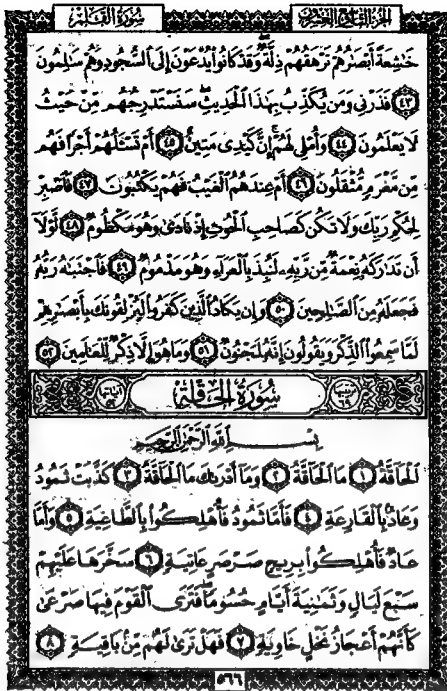 الجزء التاسع والعشرون
سُورَةُ القَلَم
خَٰشِعَةً أَبْصَٰرُهُمْ تَرْهَقُهُمْ ذِلَّةٌۖ وَقَدْ كَانُوا۟ يُدْعَوْنَ إِلَى ٱلسُّجُودِ وَهُمْ سَٰلِمُونَ
٤٣ فَذَرْنِى وَمَن يُكَذِّبُ بِهَٰذَا ٱلْحَدِيثِۖ سَنَسْتَدْرِجُهُم مِّنْ حَيْثُ
لَا يَعْلَمُونَ ٤٤ وَأُمْلِى لَهُمْۚ إِنَّ كَيْدِى مَتِينٌ ٤٥ أَمْ تَسْـَٔلُهُمْ أَجْرًا فَهُم
مِّن مَّغْرَمٍ مُّثْقَلُونَ ٤٦ أَمْ عِندَهُمُ ٱلْغَيْبُ فَهُمْ يَكْتُبُونَ ٤٧ فَٱصْبِرْ
لِحُكْمِ رَبِّكَ وَلَا تَكُن كَصَاحِبِ ٱلْحُوتِ إِذْ نَادَىٰ وَهُوَ مَكْظُومٌ ٤٨ لَّوْلَآ
أَن تَدَٰرَكَهُۥ نِعْمَةٌ مِّن رَّبِّهِۦ لَنُبِذَ بِٱلْعَرَآءِ وَهُوَ مَذْمُومٌ ٤٩ فَٱجْتَبَٰهُ رَبُّهُۥ
فَجَعَلَهُۥ مِنَ ٱلصَّٰلِحِينَ ٥٠ وَإِن يَكَادُ ٱلَّذِينَ كَفَرُوا۟ لَيُزْلِقُونَكَ بِأَبْصَٰرِهِمْ
لَمَّا سَمِعُوا۟ ٱلذِّكْرَ وَيَقُولُونَ إِنَّهُۥ لَمَجْنُونٌ ٥١ وَمَا هُوَ إِلَّا ذِكْرٌ لِّلْعَٰلَمِينَ ٥٢
سُورَةُ الحَاقَّة
بِسْمِ ٱللَّهِ ٱلرَّحْمَٰنِ ٱلرَّحِيمِ
ٱلْحَآقَّةُ ١ مَا ٱلْحَآقَّةُ ٢ وَمَآ أَدْرَىٰكَ مَا ٱلْحَآقَّةُ ٣ كَذَّبَتْ ثَمُودُ
وَعَادٌۢ بِٱلْقَارِعَةِ ٤ فَأَمَّا ثَمُودُ فَأُهْلِكُوا۟ بِٱلطَّاغِيَةِ ٥ وَأَمَّا
عَادٌ فَأُهْلِكُوا۟ بِرِيحٍ صَرْصَرٍ عَاتِيَةٍ ٦ سَخَّرَهَا عَلَيْهِمْ
سَبْعَ لَيَالٍ وَثَمَٰنِيَةَ أَيَّامٍ حُسُومًاۖ فَتَرَى ٱلْقَوْمَ فِيهَا صَرْعَىٰ
كَأَنَّهُمْ أَعْجَازُ نَخْلٍ خَاوِيَةٍ ٧ فَهَلْ تَرَىٰ لَهُم مِّنۢ بَاقِيَةٍ ٨
٥٦٦